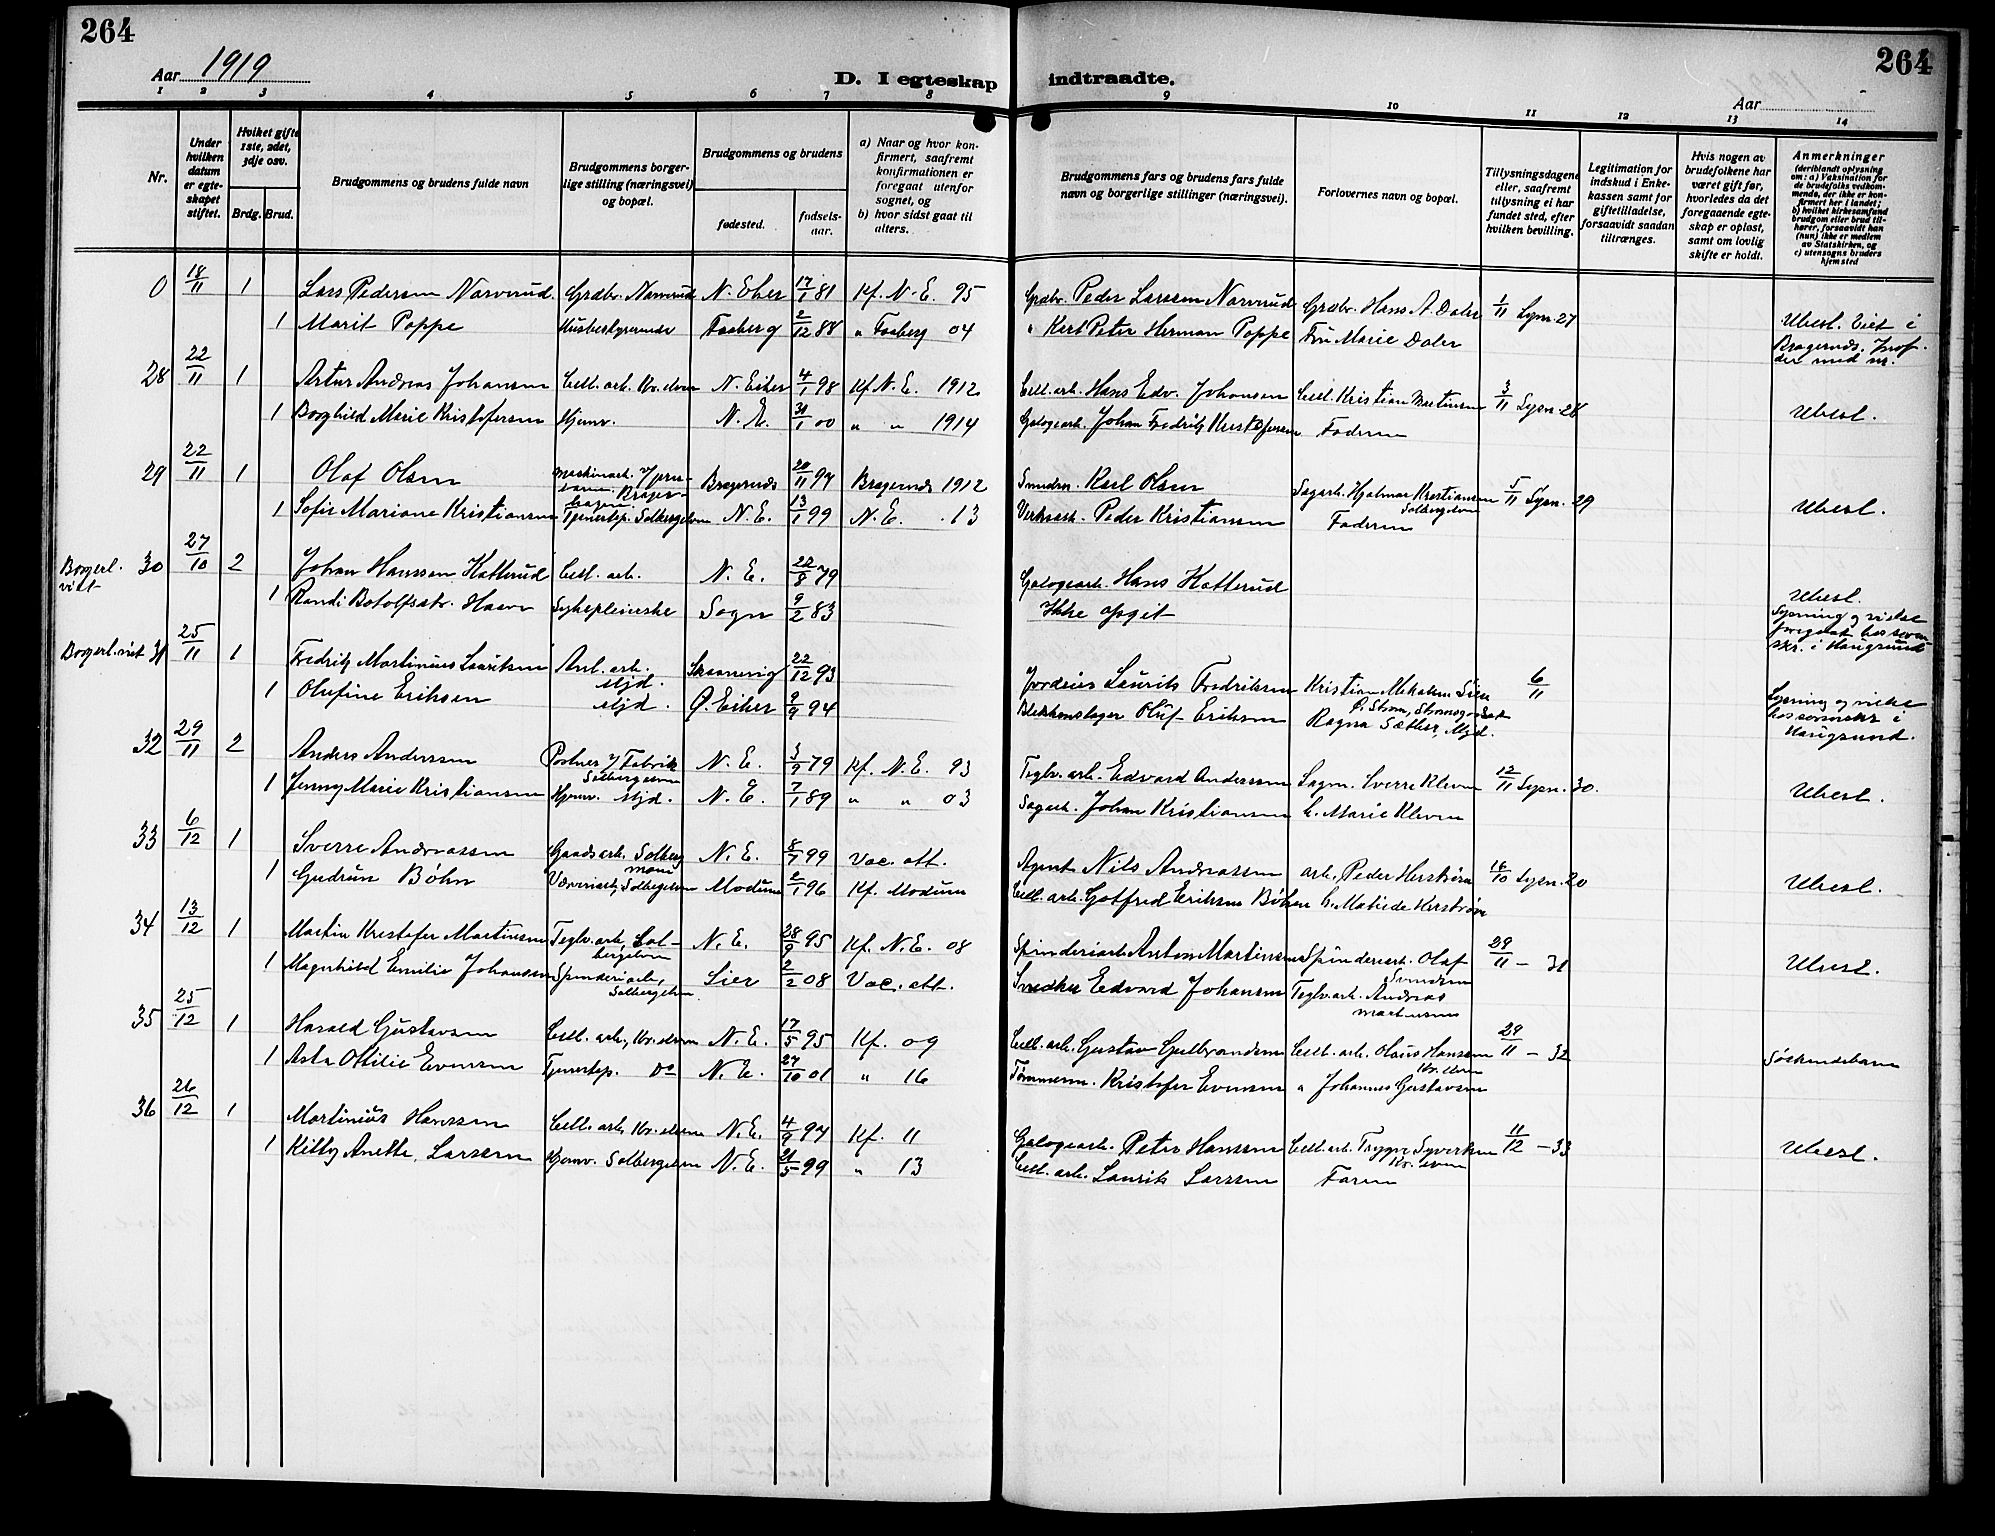 264
Aar 1919
D. I egteskap
1 2 3 4 5 6 7 8
Nr.
Under hvilken datum er egteskapet stiftet.
Hvilket gifte 1ste, 2det, 3dje osv.
Brdg. Brud.
Brudgommens og brudens fulde navn
Brudgommens borgerlige stilling (næringsvei) og bopæl.
Brudgommens og brudens
fødested.
fødselsaar.
a) Naar og hvor konfirmert, saafremt konfirmationen er foregaat utenfor sognet, og
b) hvor sidst gaat til alters.
0 18/11 1 Lars Pedersen Narverud Grdbr. Narverud N. Eker 17/1 81 Kf. N. E. 95
1 Marit Poppe Husbestyrerinde Faaberg 2/12 88 " Faaberg 04
28 22/11 1 Artur Andreas Johansen Cell. arb. Kr. elven N. Eiker 4/1 98 Kf N. E. 1912
1 Borghild Marie Kristofersen Hjemv. N. E. 31/1 00 " " 1914
29 22/11 1 Olaf Olsen Bragernes 20/11 97 Bragernes 1912
1 Sofie Mariane Kristiansen Tjenestep. Solbergelven N. E. 13/1 99 N. E. . 13
Borgerl. viet 30 27/10 2 Johan Hanssen Hatterud Cell. arb. N. E. 22/8 79
1 Randi Botolfsdtr. Sykepleierske Sogn 9/2 83
Borgerl. viet 31 25/11 1 Fredrik Martinius Lauritsen Anl. arb. Mjd. Skaanevig 22/12 93
1 Olufine Eriksen Mjd. Ø. Eiker 9/9 94
32 29/11 2 Anders Anderssen Portner v/ Fabrik Solbergelven N. E. 3/9 79 Kf. N. E. 93
1 Jenny Marie Kristiansen Hjemv. Mjd. N. E. 7/1 89 " " 03
33 6/12 1 Sverre Andreassen Gaardsarb. Solberg N. E. 8/7 99 Vac. att.
1 Gudrun Bøhn Væveriarb. Solbergelven Modum 2/1 96 Kf. Modum
34 13/12 1 Martin Kristofer Martinsen Teglv. arb. Solbergelven N. E. 28/9 95 Kf. N. E. 08
1 Magnhild Emilie Johansen Spinderiarb., Solbergelven Lier 2/2 08 Vac. att.
35 25/12 1 Harald Gustavsen Cell. arb., Kr. elven N. E. 17/5 95 Kf. 09
1 Asta Otilie Evensen Tjenestep. Do N. E. 27/10 01 " 16
36 26/12 1 Martinius Hanssen Cell. arb. Kr. elven N. E. 4/9 97 Kf. 11
1 Kitty Anette Larsen Hjemv. Solbergelven N. E. 21/5 99 " 13
264
indtraadte.
Aar
9 10 11 12 13 14
Brudgommens fars og brudens fars fulde navn og borgerlige stillinger (næringsvei).
Forlovernes navn og bopæl.
Tillysningsdagene eller, saafremt tillysning ei har fundet sted, efter hvilken bevilling.
Legitimation for indskud i Enkekassen samt for giftetilladelse, forsaavidt saadan tiltrænges.
Hvis nogen av brudefolkene har været gift før, hvorledes da det foregaaende egteskap er opløst, samt om lovlig skifte er holdt.
Anmerkninger
(deriblandt oplysning om: a) Vaksination for de brudefolks vedkommende, der ikke er konfirmert her i landet; b) hvilket kirkesamfund brudgom eller brud tilhører, forsaavidt han (hun) ikke er medlem av Statskirken, og c) utensogns bruders hjemsted
Grdbr. Peder Larssen Narverud Grdbr. Hans A. Daler 1/11 Lysn. 27
" Karl Peter Herman Poppe Fru Marie Daler Ubesl. Viet i Bragernes.
Cell. arb. Hans Edv. Johansen Cell. Kristian Martinsen 3/11 Lysn. 28
Galogearb. Johan Fredrik Kristofersen Faderen Ubesl.
Karl Olsen Sagarb. Hjalmar Kristiansen Solbergelven 5/11 Lysn. 29
Verksarb. Peder Kristiansen Faderen Ubesl.
Galogearb. Hans Hatterud
Ikke opgit Ubesl. Lysning og vielse foregaat hos sorenskr. i Haugsund
Laurits Fredriksen Kristian 6/11
Blikkenslager Oluf Eriksen Ragna Sæther, Mjd. Lysning og vielse hos sorenskr. i Haugsund.
Teglv. arb. Edvard Anderssen Sagm. Sverre Kleven 12/11 Lysn. 30.
Sagarb. Johan Kristiansen C. Marie Kleven Ubesl.
Agent Nils Andreassen arb. Peder Herstrøm 16/10 Lysn. 20
Cell. arb. Gotfred Eriksen Bøhn Ubesl.
Spinderiarb. Anton Martinsen Spinderiarb. Olaf Svendsen 29/11 — 31
Snedker Edvard Johansen Teglv. arb. Andreas Martinsen Ubesl.
Cell. arb. Gustav Gulbrandsen Cell. arb. Olaus Hansen Kr. elven 29/11 — 32
Tømmerm. Kristofer Evensen " Johannes Gustavsen Søskendebarn
Galogearb. Peter Hanssen Cell. arb. Trygve Syvertsen Kr. elven 11/12 — 33
Cell. arb. Laurits Larssen Faren Ubesl.